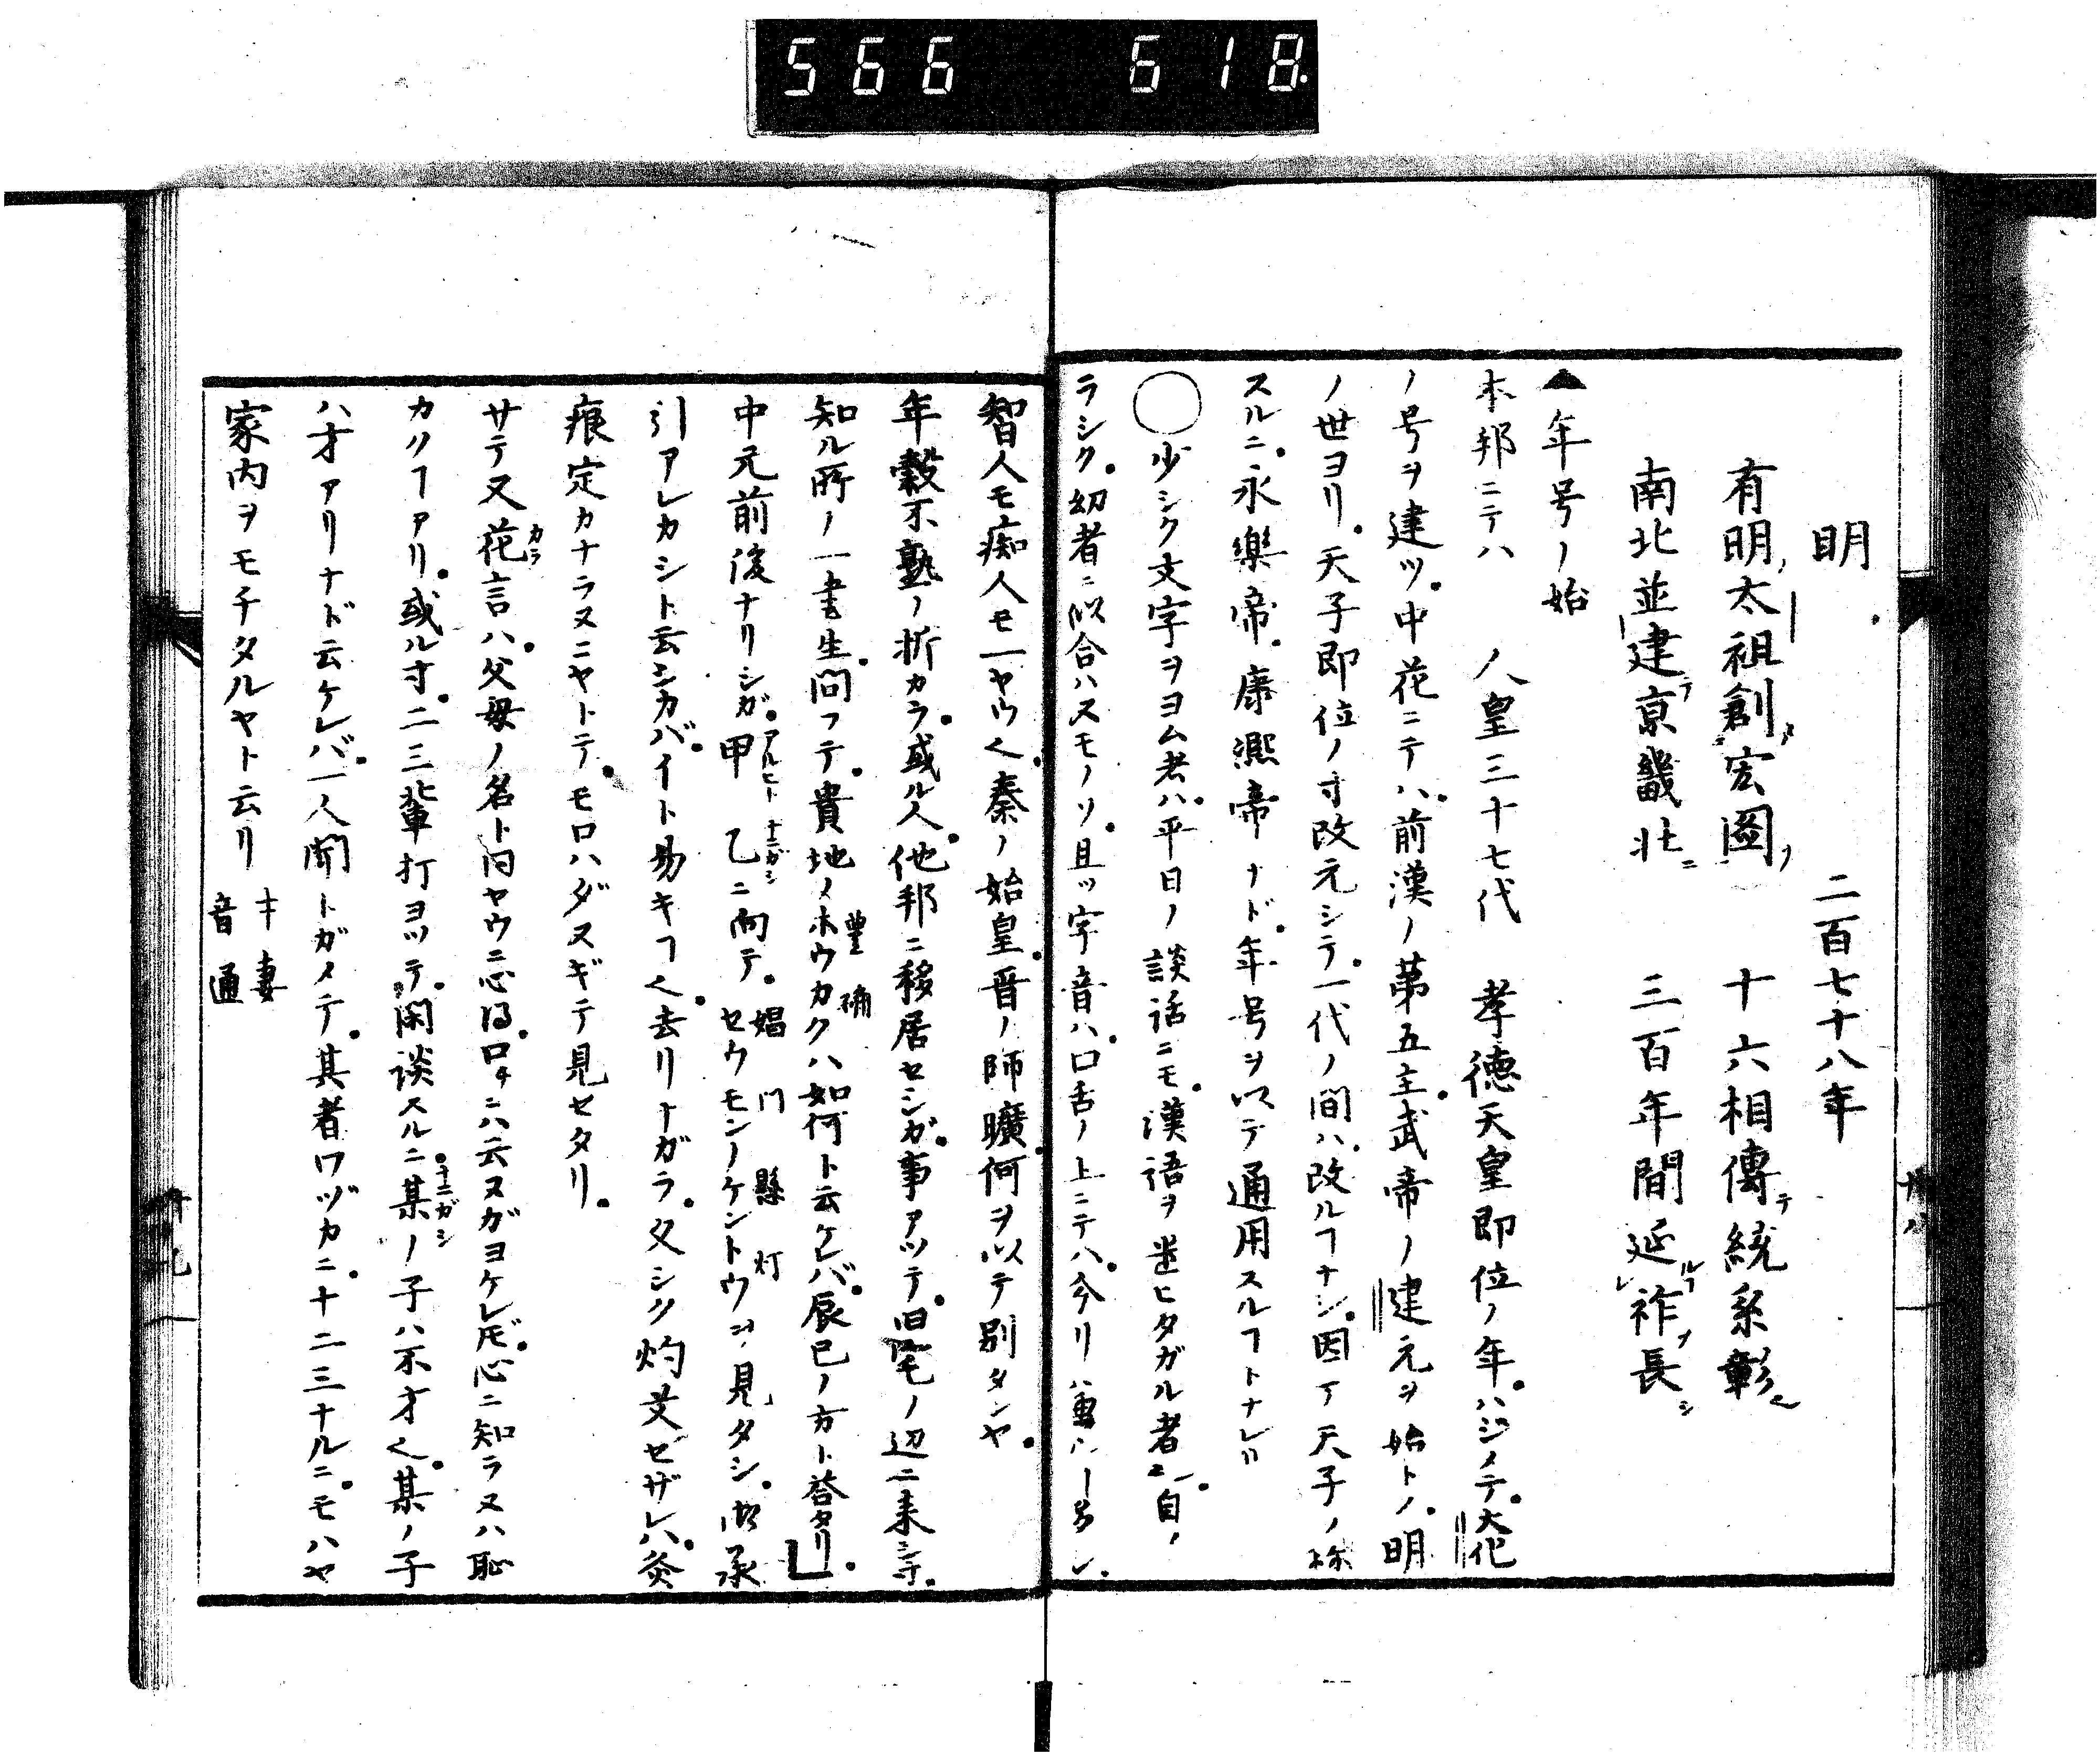 566 618
明 二百七十八年
有明太祖創宏圖 十六相傳統系彰
南北並建京畿壮 三百年間延祚長
▲年号ノ始
本邦ニテハ 人皇三十七代 孝徳天皇即位ノ年ハジメテ大化
ノ号ヲ建ツ中花ニテハ前漢ノ第五主武帝ノ建元ヲ始トノ明
ノ世ヨリ天子即位ノ寸改元シテ一代ノ間ハ改ルヿナシ因テ天子ノ称
スルニ永樂帝康熈帝ナド年号ヲ以テ通用スルヿトナレリ
○少シク文字ヲヨム者ハ平日ノ談話ニモ漢語ヲ遣ヒタガル者ニ自ノ
ラシク幼者ニ似合ハスモノソ且ツ字音ハ口舌ノ上ニテハ今リハ
智人モ痴人モ一ヤウ〱秦ノ始皇晋ノ師曠何ヲ以テ別タンヤ
年穀不熟ノ折カラ或ル人他邦ニ移居セシガ事アツテ旧宅ノ辺ニ来シ寸
知ル所ノ一書生問フテ貴地ノホウカクハ如何ト云ケレバ辰巳ノ方ト答タリ
豊 確
中元前後ナリシガ甲 乙ニ向テセウモンノケントウヲ見タシ御承
アルヒト ナニガシ 娼門 懸灯
引アレカシト云シカバイト易キヿ〱去リナガラ久シク灼艾セザレハ灸
痕定カナラヌニヤトテモロハダヌギテ見セタリ
サテ又花言ハ父母ノ名ト同ヤウニ心得口ヨニハ云ヌガヨケレ𪜈心ニ知ラヌハ恥
カラ
カクヿアリ或ル寸二三輩打ヨツテ閑談スルニ某ノ子ハ不才〱某ノ子
ナニガシ
ハ才アリナド云ケレバ一人聞トガメテ其者ワヅカニ十二三ナルニモハヤ
家内ヲモチタルヤト云リ
キ 妻
音 通